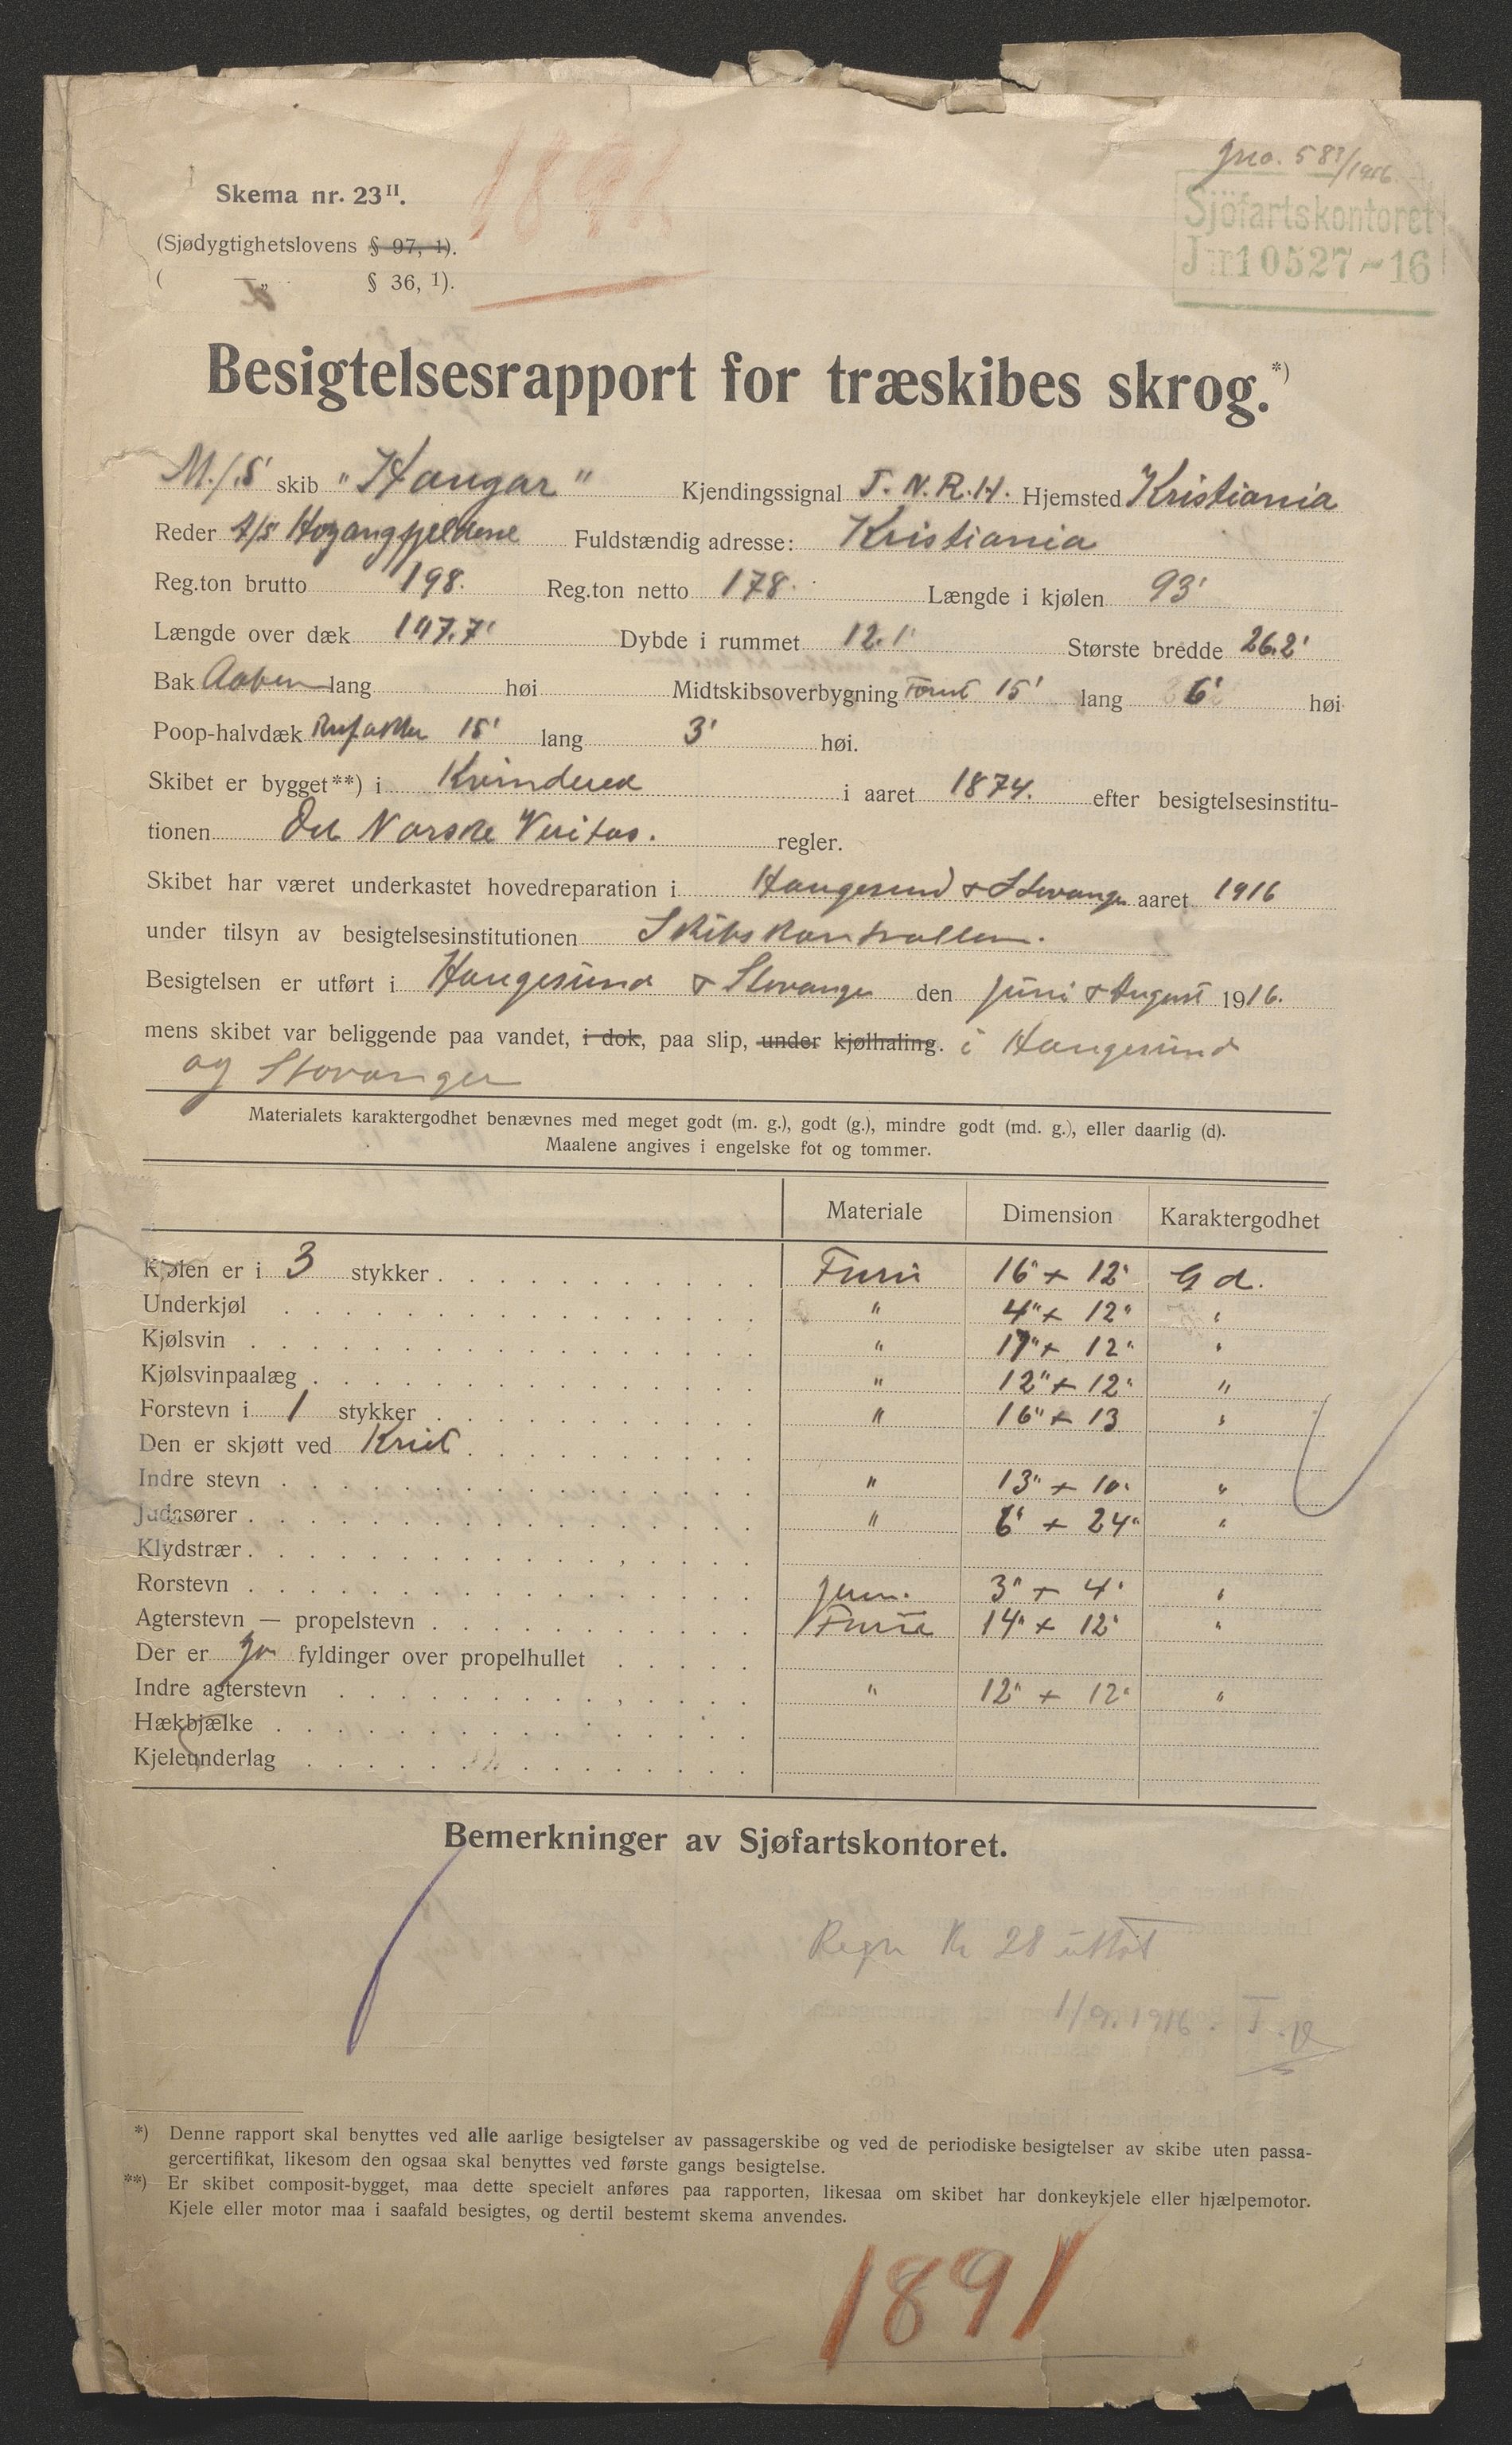 1891
Jno. 583/1916
Sjöfartskontoret
Jnr 10527-16
Skema nr. 23II.
(Sjødygtighetslovens § 97, 1).
( —„— § 36, 1).
Besigtelsesrapport for træskibes skrog.*)
M./S skib "Haugar" Kjendingssignal T. N. R. H. Hjemsted Kristiania
Reder A/S Fuldstændig adresse: Kristiania
Reg.ton brutto 198. Reg.ton netto 178. Længde i kjølen 93'
Længde over dæk 107.7' Dybde i rummet 12.1' Største bredde 26.2'
Bak Aaben lang høi Midtskibsoverbygning Forut 15' lang 6' høi
Poop-halvdæk Ruf akter 15' lang 3' høi.
Skibet er bygget**) i i aaret 1874. efter besigtelsesinstitu-
tionen Det Norske Veritas. regler.
Skibet har været underkastet hovedreparation i Haugesund & Stavanger aaret 1916
under tilsyn av besigtelsesinstitutionen Skibskontrollen.
Besigtelsen er utført i Haugesund & Stavanger den juni & August 1916.
mens skibet var beliggende paa vandet, i dok, paa slip, under kjølhaling. i Haugesund
og Stavanger
Materialets karaktergodhet benævnes med meget godt (m. g.), godt (g.), mindre godt (md. g.), eller daarlig (d).
Maalene angives i engelske fot og tommer.
Materiale Dimension Karaktergodhet
Kjølen er i 3 stykker . . . . . . . . . . Furu 16" + 12" Gd.
Underkjøl . . . . . . . . . . . . . . " 4" + 12" "
Kjølsvin . . . . . . . . . . . . . . . " 17" + 12" "
Kjølsvinpaalæg . . . . . . . . . . . . . " 12" + 12" "
Forstevn i 1 stykker . . . . . . . . . . " 16" + 13 "
Den er skjøtt ved Knet . . . . . . . . .
Indre stevn . . . . . . . . . . . . . . " 13" + 10" "
Judasører . . . . . . . . . . . . . . . " 6" + 24" "
Klydstrær . . . . . . . . . . . . . . .
Rorstevn . . . . . . . . . . . . . . . Jern. 3" + 4" "
Agterstevn — propelstevn . . . . . . . . . . Furu 14" + 12" "
Der er Ja fyldinger over propelhullet . . . . .
Indre agterstevn . . . . . . . . . . . . " 12" + 12" "
Hækbjælke . . . . . . . . . . . . . .
Kjeleunderlag . . . . . . . . . . . . .
Bemerkninger av Sjøfartskontoret.
Regn Kr 28 utstdt
1/9. 1916.
*) Denne rapport skal benyttes ved alle aarlige besigtelser av passagerskibe og ved de periodiske besigtelser av skibe uten passa-
gercertifikat, likesom den ogsaa skal benyttes ved første gangs besigtelse.
**) Er skibet composit-bygget, maa dette specielt anføres paa rapporten, likesaa om skibet har donkeykjele eller hjælpemotor.
Kjele eller motor maa i saafald besigtes, og dertil bestemt skema anvendes.
1891